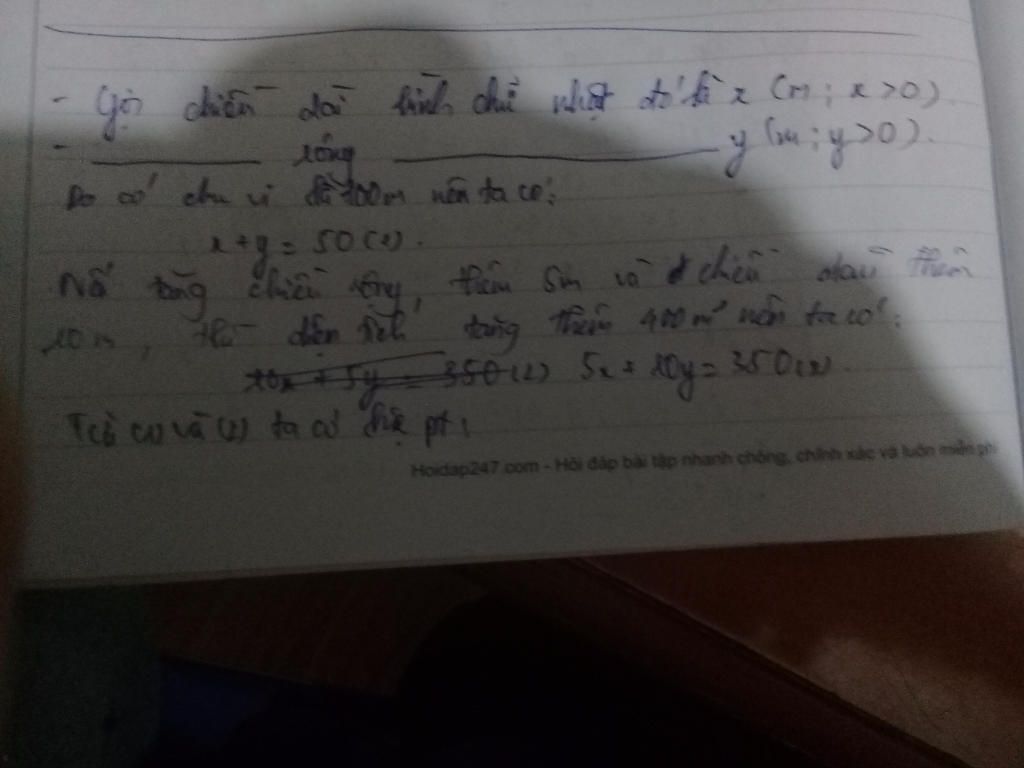 - Gọi chiều dài hình chữ nhật đó là x (m; x > 0).
- ______ rộng ______ y (m; y > 0).
Do có chu vi là 100m nên ta có:
x + y = 50 (1).
Nếu tăng chiều rộng thêm 5m và chiều dài thêm
10m, thì diện tích tăng thêm 400m² nên ta có:
10x + 5y = 350 (2) 5x + 10y = 350 (2).
Từ (1) và (2) ta có hệ pt:
Hoidap247.com - Hỏi đáp bài tập nhanh chóng, chính xác và luôn miễn phí